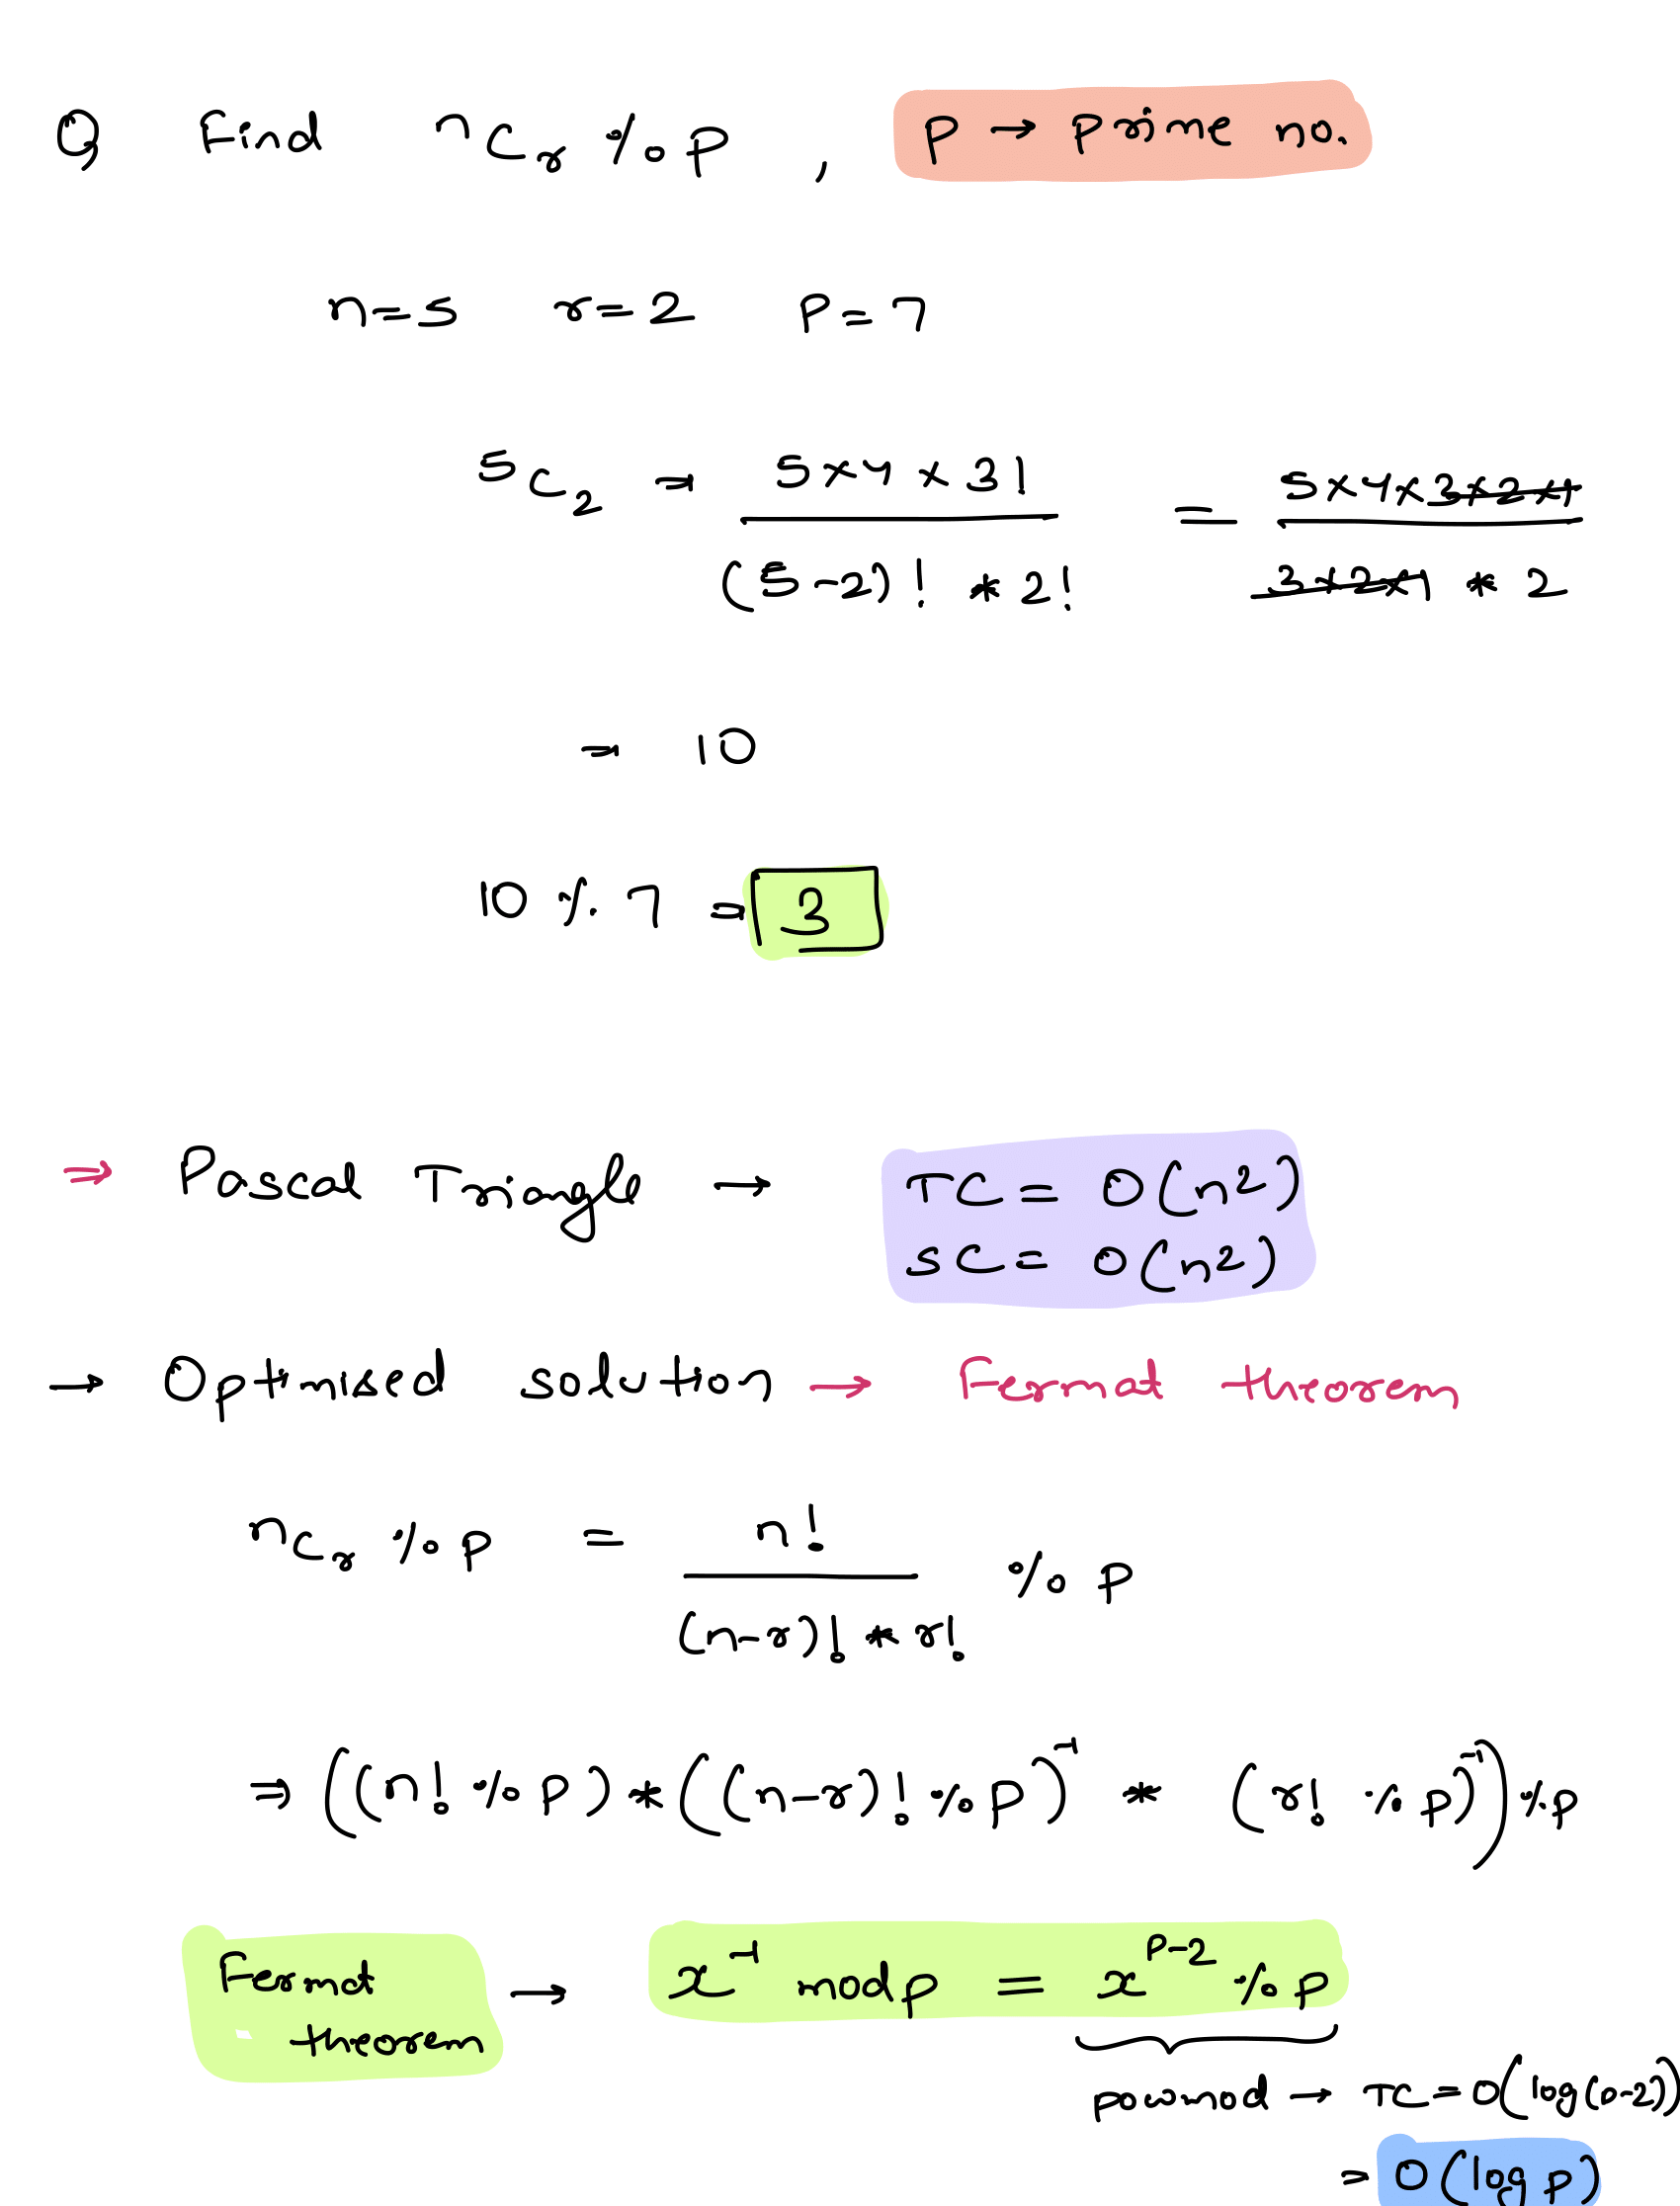 Q Find nCr % p , p → prime no.
n=5 r=2 p=7
5C2 ⇒ 5×4×3! / (5-2)! * 2! = 5×4×3×2×1 / 3×2×1 * 2
⇒ 10
10 % 7 ⇒ 3
⇒ Pascal Triangle → TC = O(n²)
SC = O(n²)
→ Optimised solution → Fermat theorem
nCr % p = n! / (n-r)! * r! % p
⇒ ((n! % p) * ((n-r)! % p)⁻¹ * (r! % p)⁻¹) % p
Fermat theorem → x⁻¹ mod p = x^(p-2) % p
powmod → TC = O(log(p-2))
= O(log p)